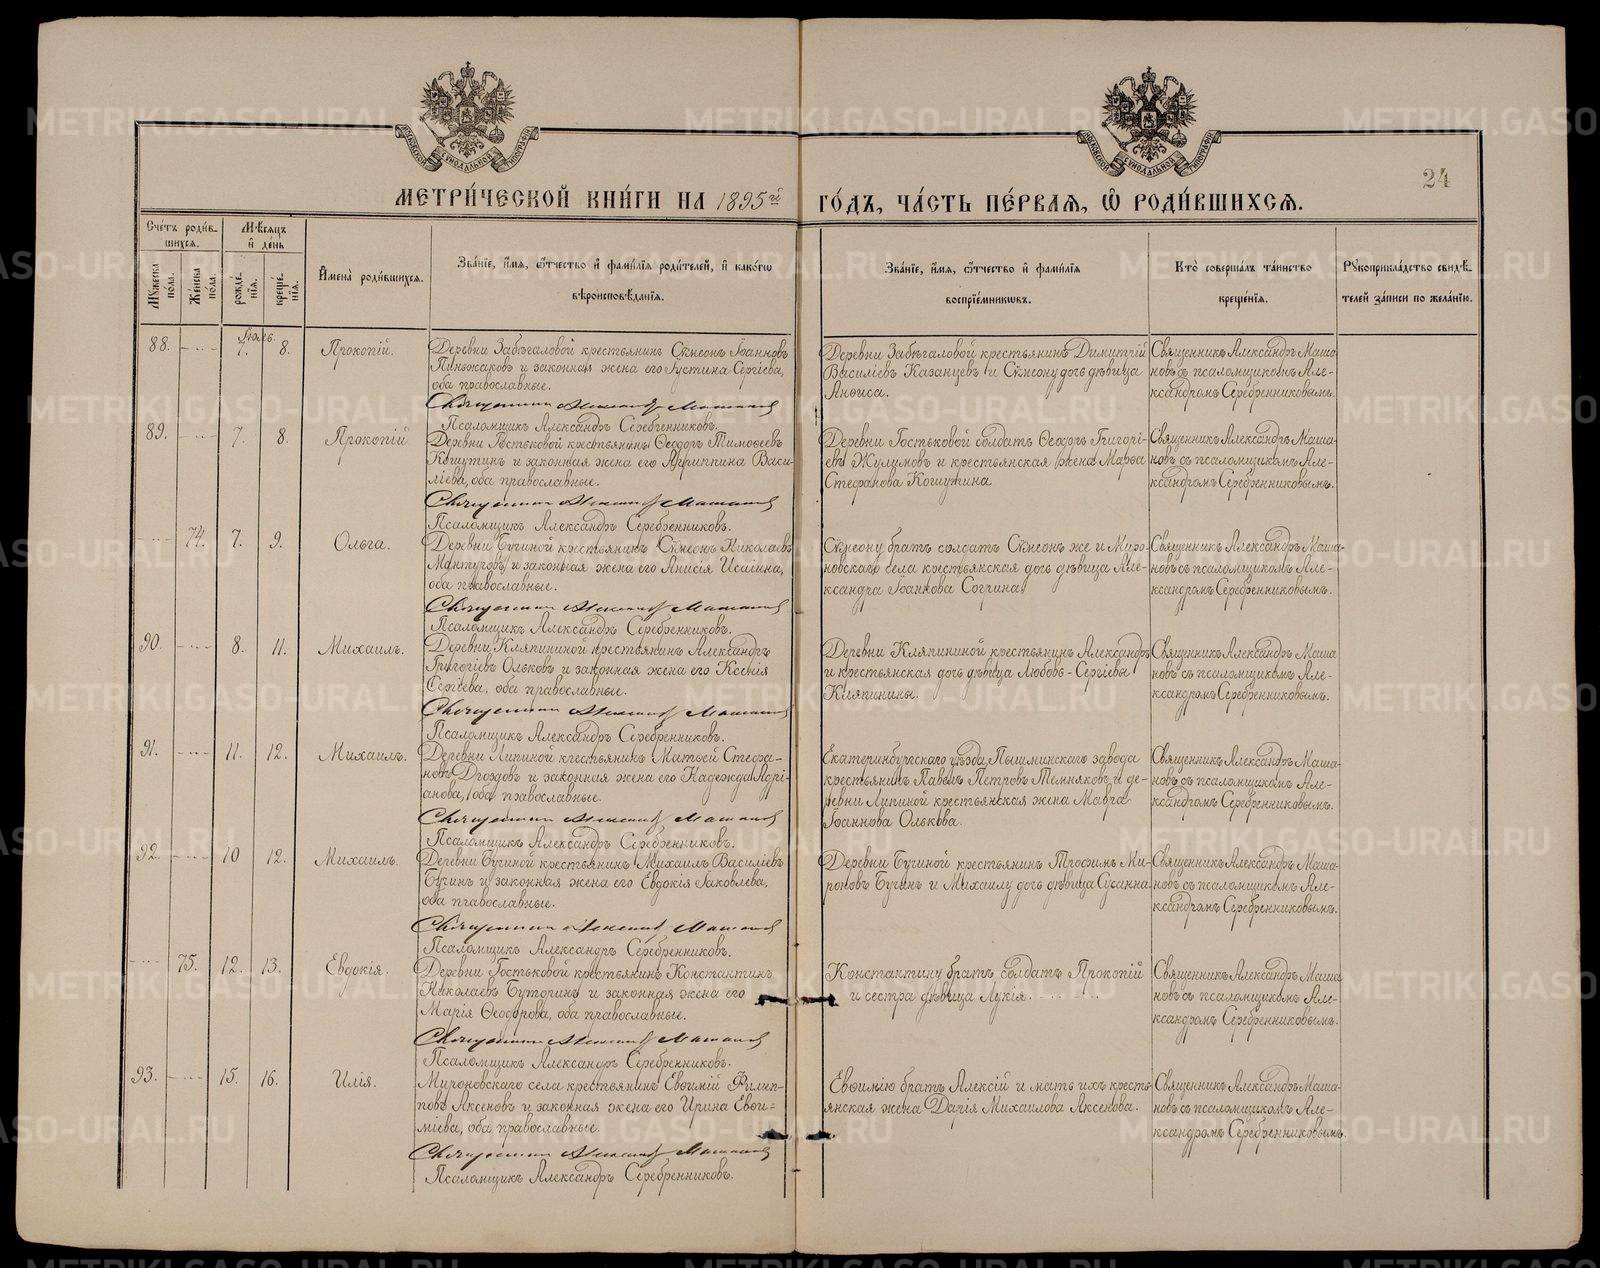 МЕТРИ́ЧЕСКОЙ КНИ́ГИ НА 1895й ГО́ДЪ, ЧА́СТЬ ПЕ́РВАЯ, Ѽ РОДИ́ВШИХСѦ.
24
Сче́тъ роди́в-
шихся.
Мѣ́сяцъ
и́ де́нь
Му́жеска по́ла.
Же́нска по́ла.
рожде́нія.
креще́нія.
И́мена̀ роди́вшихся.
Зва́ніе, и́мя, ѻ́тчество и́ фами́лія роди́телей, и́ како́гѡ
вѣроисповѣ́данія.
Зва́ніе, и́мя, ѻ́тчество и́ фами́лія
воспрїе́мниковъ.
Кто̀ соверша́лъ та́инство
креще́нія.
Рꙋкоприкла́дство свидѣ́-
телей за́писи по жела́нію.
Іюль.
88. 7. 8. Прокопій.
Деревни Забѣгаловой крестьянинъ Сѵмеонъ Іоанновъ
Пиньжаковъ и законная жена его Іустина Сергіева,
оба православные.
Священникъ Александръ Машановъ
Псаломщикъ Александръ Серебренниковъ.
Деревни Забѣгаловой крестьянинъ Димитрій
Василіевъ Казанцевъ и Сѵмеону дочь дѣвица
Анѳиса.
Священникъ Александръ Маша-
новъ съ псаломщикомъ Але-
ксандромъ Серебренниковымъ.
89. 7. 8. Прокопій
Деревни Гостьковой крестьянинъ Ѳеодоръ Тимоѳеевъ
Кошутинъ и законная жена его Агриппина Васи-
ліева, оба православные.
Священникъ Александръ Машановъ
Псаломщикъ Александръ Серебренниковъ.
Деревни Гостьковой солдатъ Ѳеодоръ Григорі-
евъ Жулимовъ и крестьянская жена Марѳа
Стефанова Кошутина
Священникъ Александръ Маша-
новъ съ псаломщикомъ Але-
ксандромъ Серебренниковымъ.
74. 7. 9. Ольга.
Деревни Бучиной крестьянинъ Сѵмеонъ Николаевъ
Мантуровъ и законная жена его Анисія Исаіина,
оба православные.
Священникъ Александръ Машановъ
Псаломщикъ Александръ Серебренниковъ.
Сѵмеону братъ солдатъ Сѵмеонъ же и Миро-
новскаго села крестьянская дочь дѣвица Але-
ксандра Іоаннова Согрина.
Священникъ Александръ Маша-
новъ съ псаломщикомъ Але-
ксандромъ Серебренниковымъ.
90. 8. 11. Михаилъ.
Деревни Кляпининой крестьянинъ Александръ
Григоріевъ Ольковъ и законная жена его Ксенія
Сергіева, оба православные.
Священникъ Александръ Машановъ
Псаломщикъ Александръ Серебренниковъ.
Деревни Кляпининой крестьянинъ Александръ
и крестьянская дочь дѣвица Любовь Сергіевы
Кляпинины.
Священникъ Александръ Маша
новъ съ псаломщикомъ Але-
ксандромъ Серебренниковымъ.
91. 11. 12. Михаилъ.
Деревни Липиной крестьянинъ Матѳей Стефа-
новъ Дроздовъ и законная жена его Надежда Адрі-
анова, оба православные.
Священникъ Александръ Машановъ
Псаломщикъ Александръ Серебренниковъ.
Екатеринбургскаго уѣзда, Пышминскаго завода
крестьянинъ Павелъ Петровъ Темняковъ и де-
ревни Липиной крестьянская жена Марѳа
Іоаннова Олькова.
Священникъ Александръ Маша-
новъ съ псаломщикомъ Але-
ксандромъ Серебренниковымъ.
92. 10 12. Михаилъ.
Деревни Бучиной крестьянинъ Михаилъ Василіевъ
Бучинъ и законная жена его Евдокія Іаковлева,
оба православные.
Священникъ Александръ Машановъ
Псаломщикъ Александръ Серебренниковъ.
Деревни Бучиной крестьянинъ Трофимъ Ми-
роновъ Бучинъ и Михаилу дочь дѣвица Сусанна.
Священникъ Александръ Маша-
новъ съ псаломщикомъ Але-
ксандромъ Серебренниковымъ.
75. 12. 13. Евдокія.
Деревни Гостьковой крестьянинъ Константинъ
Николаевъ Буторинъ и законная жена его
Марія Ѳеодорова, оба православные.
Священникъ Александръ Машановъ
Псаломщикъ Александръ Серебренниковъ.
Константину братъ солдатъ Прокопій
и сестра дѣвица Лукія.
Священникъ Александръ Маша
новъ съ псаломщикомъ Але-
ксандромъ Серебренниковымъ.
93. 15. 16. Илія.
Мироновскаго села крестьянинъ Евѳимій Филип-
повъ Аксеновъ и законная жена его Ирина Евѳи-
міева, оба православные.
Священникъ Александръ Машановъ
Псаломщикъ Александръ Серебренниковъ.
Евѳимію братъ Алексій и мать ихъ кресть-
янская жена Дарія Михаилова Аксенова.
Священникъ Александръ Маша-
новъ съ псаломщикомъ Але-
ксандромъ Серебренниковымъ.
METRIKI.GASO-URAL.RU